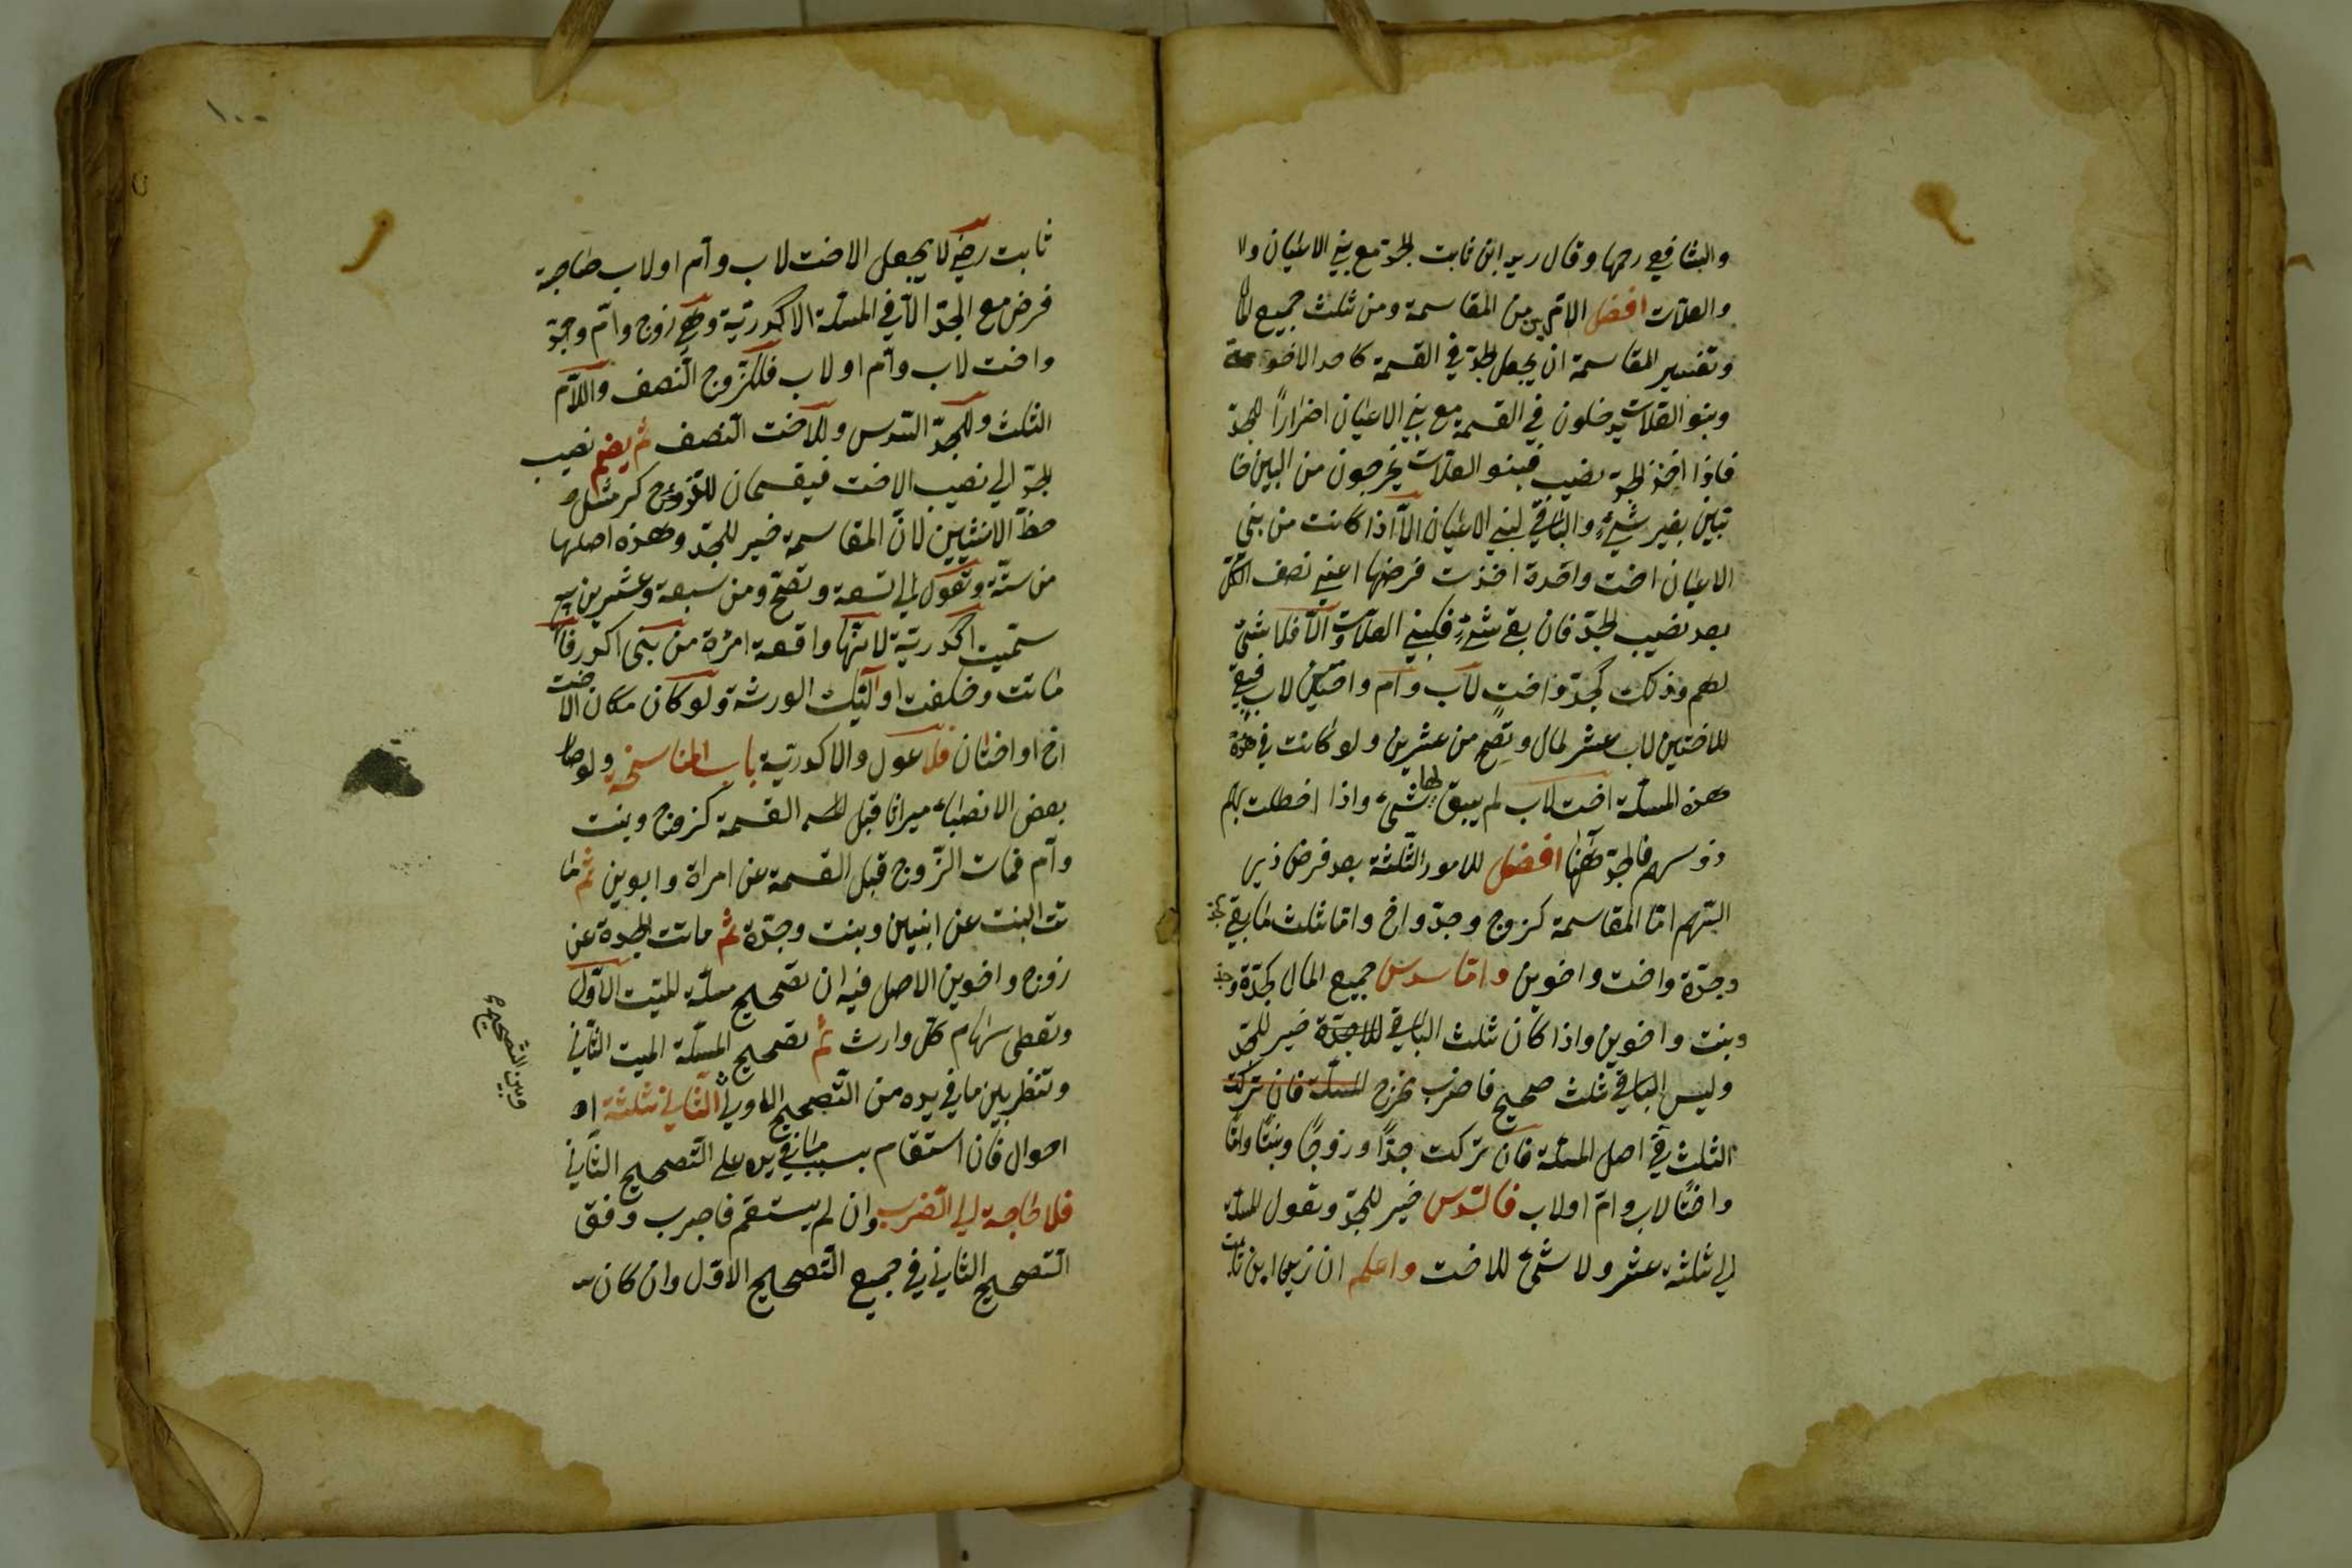 والشافعي رحمها وقال زيد ابن ثابت للجد مع بني الاعيان ولا
والعلات افضل الامرين من المقاسمة ومن ثلث جميع المال
وتفسير المقاسمة ان يجعل الجد في القسمة كاحد الاخوة
وبنو العلات يدخلون في القسمة مع بني الاعيان اضرارًا للجد
فاذا اخذ الجد نصيب فبنو العلات يخرجون من البين خا
ئبين بغير شيءٍ والباقي لبني الاعيان الّا اذا كانت من بني
الاعيان اخت واحدة اخذت فرضها اعني نصف الكل
بعد نصيب الجدّ فان بقي شيءٍ فلبني العلات والّا فلا شئ
لهم وذلك كجدّ واختٍ لاب وام واختين لاب فبقي
للاختين لاب عشر المال وتصح من عشرين ولو كانت في
هذه المسئلة اخت لاب لم يبق لها شئ واذا اختلط بهم
ذو سهم فللجد ههنا افضل للامور الثّلثة بعد فرض ذي
السّهم امّا المقاسمة كزوج وجدّ واخ وامّا ثلث ما بقي كجد
وجدّة واخت واخوين وامّا سدس جميع المال كجدّة وجد
وبنت واخوين واذا كان ثلث الباقي للاجدّة خير للجدّ
وليس الباقي ثلث صحيح فاضرب مخرج المسئلة فان تركت
الثلث في اصل المسئلة فان تركت جدًّا وزوجًا وبنتًا وامًّا
واختًا لاب وامّ او لاب فالسّدس خير للجدّ وتعول المسئلة
الي ثلثة عشر ولا شئ للاخت واعلم ان زيد ابن ثابت
١٠٠
ثابت رضي لا يجعل الاخت لاب وام او لاب صاحبة
فرض مع الجدّ الّا في المسئلة الاكدريّة وهي زوج وامّ وجدّ
واخت لاب وام او لاب فللزّوج النّصف وللامّ
الثلث وللجدّ السّدس وللاخت النّصف ثم يضم نصيب
الجد الي نصيب الاخت فيقسمان للذكر مثل
حظّ الانثيين لانّ المقاسمة خير للجدّ وهذه اصلها
من ستّة وتعول الي تسعة وتصحّ ومن سبعة وعشرين
سمّيت اكدريّة لانّها واقعة امرْة من بني اكدر فا
ماتت وخلفت اولئك الورثة ولو كان مكان الاخت
اخ او اختان فلا عول والاكدريّة باب المناسخة ولو صا
بعض الانصباء ميراثا قبل القسمة كزوج وبنت
وام فمات الزّوج قبل القسمة عن امراة وابوين ثم ما
تت البنت عن ابنين وبنت وجدّة ثم ماتت الجدة عن
زوج واخوين الاصل فيه ان تصحيح مسئلة الميّت الاوّل
وتعطي سهام كلّ وارث ثم تصحيح المسئلة الميت الثّاني
وتنظر بين ما في يده من التّصحيح الاول الثّاني ثلثة
احوال فان استقام بسبب ما في يده علي التّصحيح الثّاني
فلا حاجة الي الضرب وان لم يستقم فاضرب وفق
التّصحيح الثاني في جميع التّصحيح الاوّل وان كان
وبين التصحيح